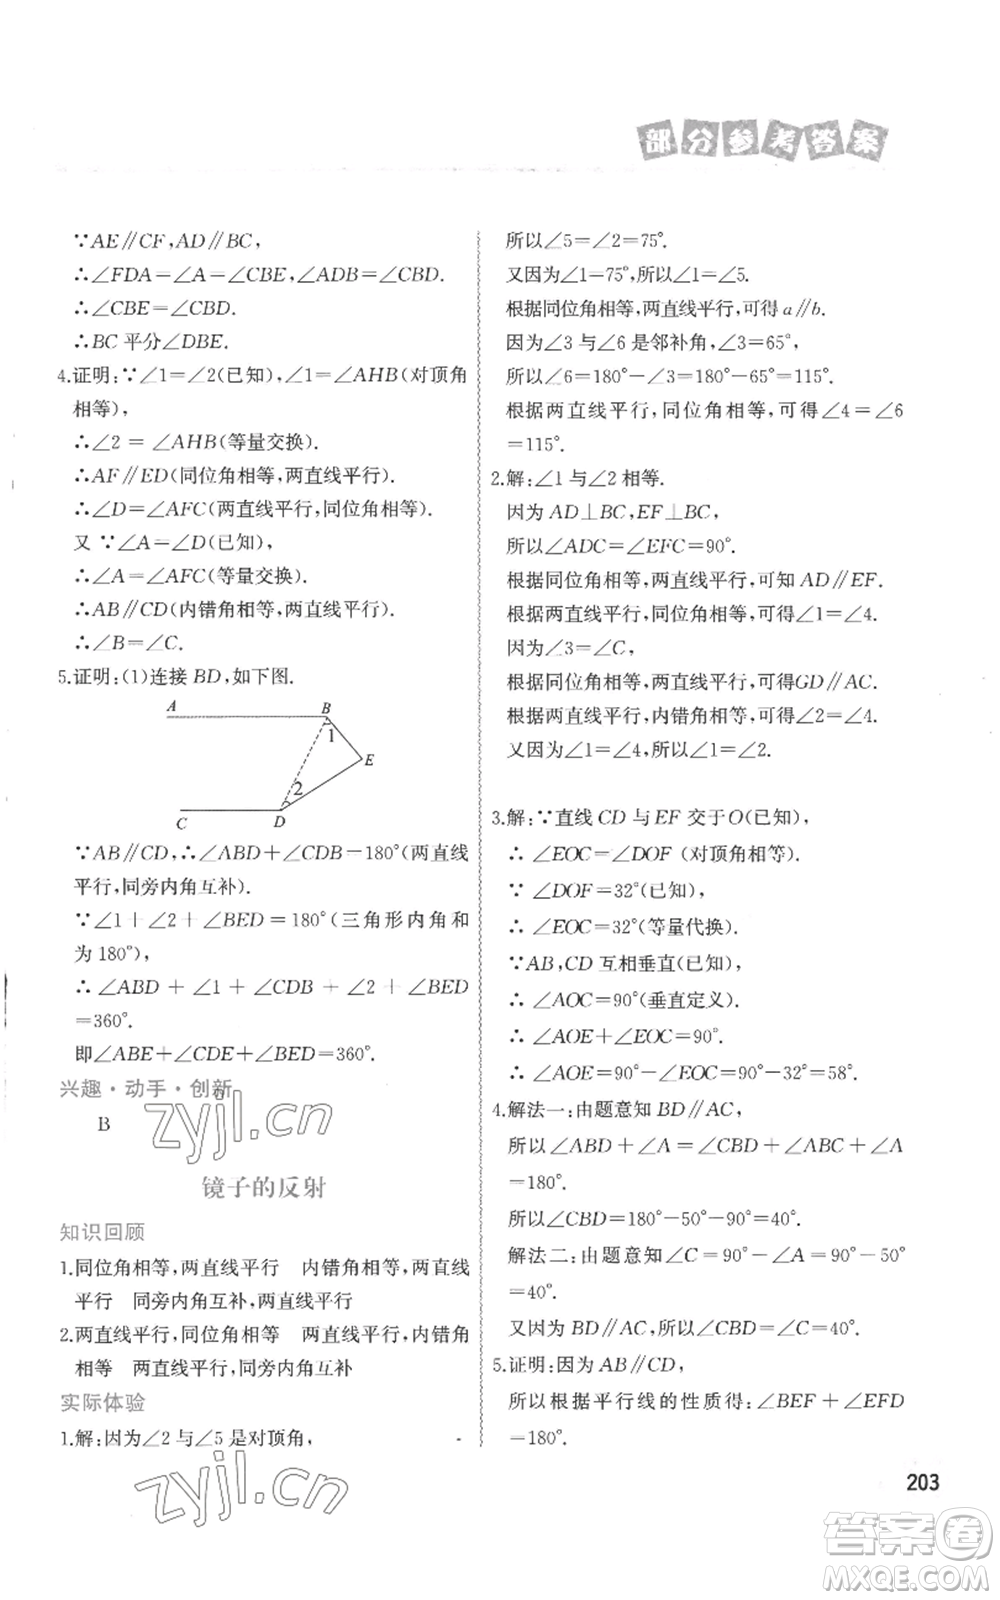 部分参考答案
∵AE∥CF,AD∥BC,
∴∠FDA=∠A=∠CBE,∠ADB=∠CBD.
∴∠CBE=∠CBD.
∴BC 平分∠DBE.
4.证明:∵∠1=∠2(已知),∠1=∠AHB(对顶角
相等),
∴∠2=∠AHB(等量交换).
∴AF∥ED(同位角相等,两直线平行).
∴∠D=∠AFC(两直线平行,同位角相等).
又 ∵∠A=∠D(已知),
∴∠A=∠AFC(等量交换).
∴AB∥CD(内错角相等,两直线平行).
∴∠B=∠C.
5.证明:(1)连接 BD,如下图.
A B
1
E
2
C D
∵AB∥CD,∴∠ABD+∠CDB=180°(两直线
平行,同旁内角互补).
∵∠1+∠2+∠BED=180°(三角形内角和
为 180°),
∴∠ABD+∠1+∠CDB+∠2+∠BED
=360°.
即∠ABE+∠CDE+∠BED=360°.
兴趣·动手·创新
B
zyjl.cn
镜子的反射
知识回顾
1.同位角相等,两直线平行 内错角相等,两直线
平行 同旁内角互补,两直线平行
2.两直线平行,同位角相等 两直线平行,内错角
相等 两直线平行,同旁内角互补
实际体验
1.解:因为∠2 与∠5 是对顶角,
zyjl.cn
所以∠5=∠2=75°.
又因为∠1=75°,所以∠1=∠5.
根据同位角相等,两直线平行,可得 a∥b.
因为∠3 与∠6 是邻补角,∠3=65°,
所以∠6=180°-∠3=180°-65°=115°.
根据两直线平行,同位角相等,可得∠4=∠6
=115°.
2.解:∠1 与∠2 相等.
因为 AD⊥BC,EF⊥BC,
所以∠ADC=∠EFC=90°.
根据同位角相等,两直线平行,可知 AD∥EF.
根据两直线平行,同位角相等,可得∠1=∠4.
因为∠3=∠C,
根据同位角相等,两直线平行,可得GD∥AC.
根据两直线平行,内错角相等,可得∠2=∠4.
又因为∠1=∠4,所以∠1=∠2.
3.解:∵直线 CD 与 EF 交于O(已知),
∴ ∠EOC=∠DOF (对顶角相等).
∵ ∠DOF=32°(已知),
∴ ∠EOC=32°(等量代换).
∵AB,CD 互相垂直(已知),
∴ ∠AOC=90°(垂直定义).
∴ ∠AOE+∠EOC=90°.
∴ ∠AOE=90°-∠EOC=90°-32°=58°.
4.解法一:由题意知 BD∥AC,
所以∠ABD+∠A=∠CBD+∠ABC+∠A
=180°.
所以∠CBD=180°-50°-90°=40°.
解法二:由题意知∠C=90°-∠A=90°-50°
=40°.
又因为 BD∥AC,所以∠CBD=∠C=40°.
5.证明:因为 AB∥CD,
所以根据平行线的性质得:∠BEF+∠EFD
=180°.
203
答案卷
MXQE.COM